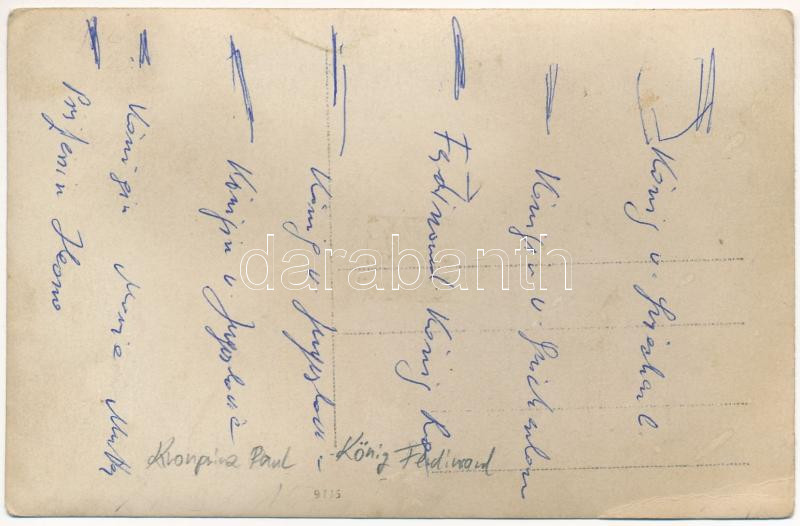 König v. Griechenl.
Königin v. Griechenland
Ferdinand König Ro
König v. Jugoslavi-
Königin v. Jugoslavie
Königin Marie Mutter
Prinzessin Ileana
Kronprinz Paul
König Ferdinand
9715
darabanth